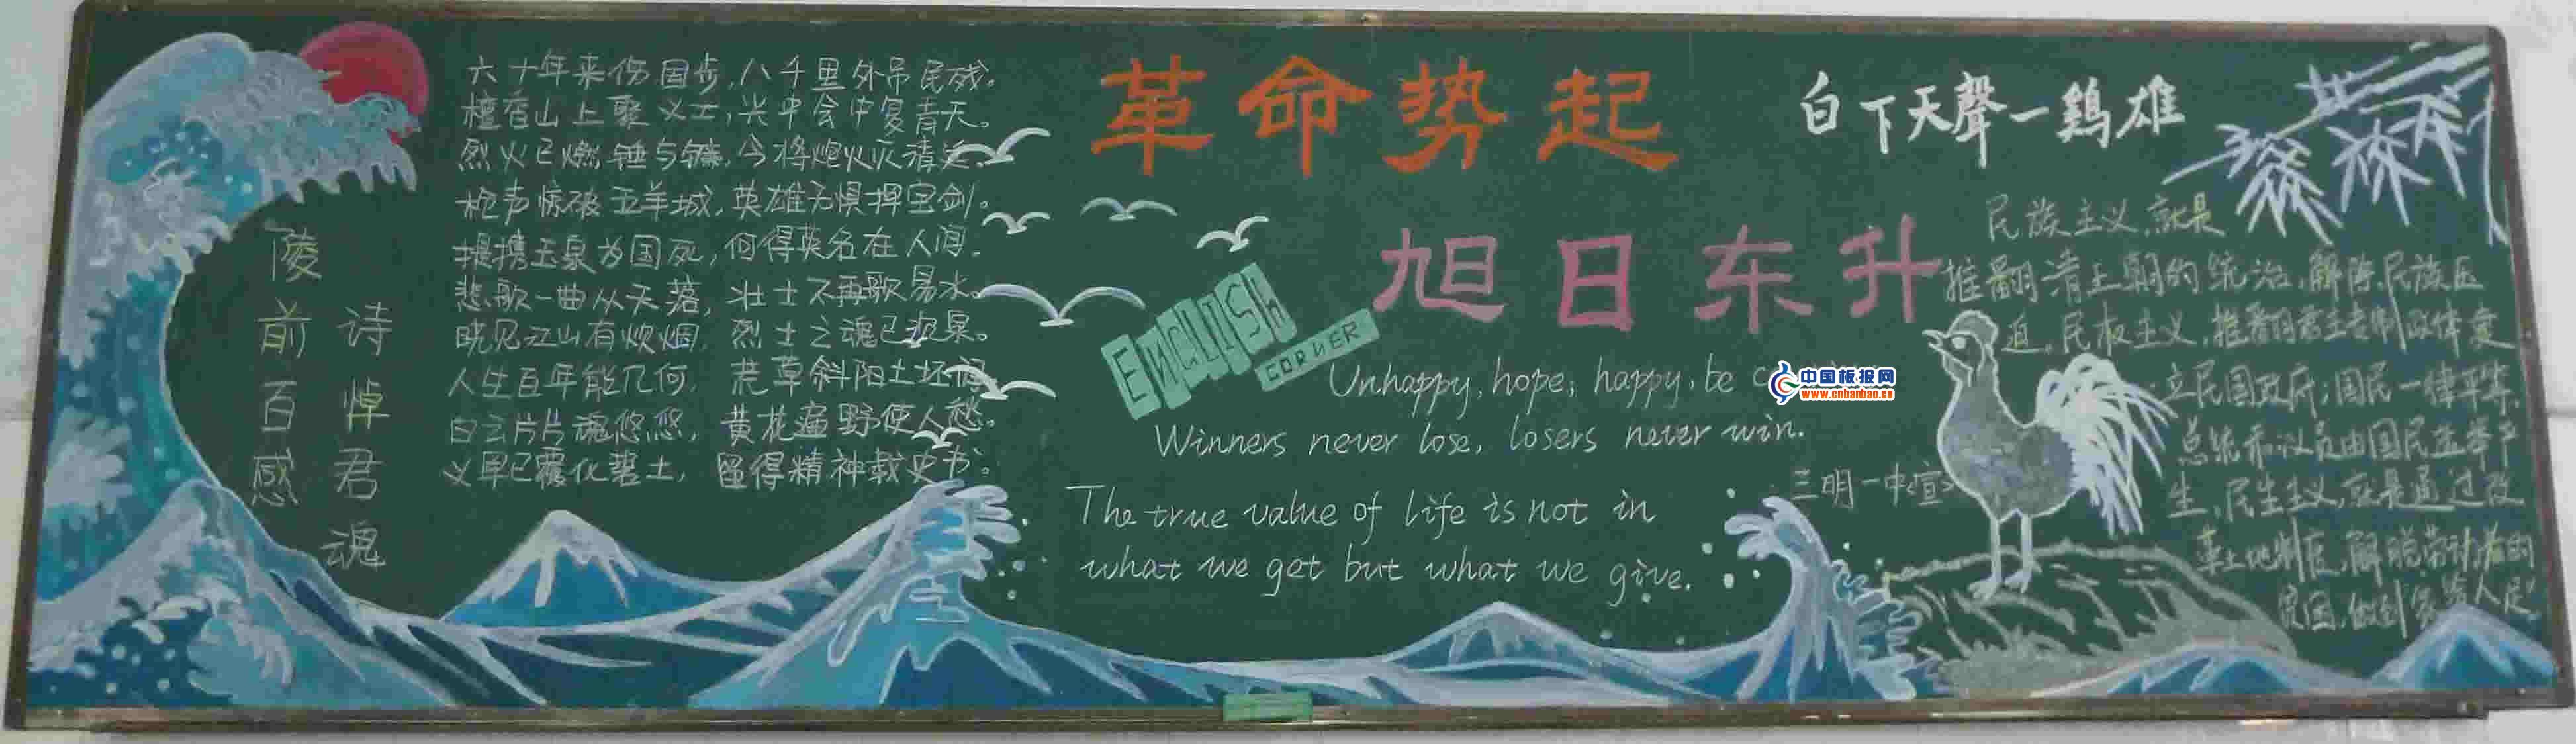 陵前百感
诗悼君魂
六十年来伤国步,八千里外吊民残。
檀香山上聚义士,兴中会中复青天。
烈火已燃锤与镰,今将炮火
枪声惊破五羊城,英雄无惧挥宝剑。
提携玉泉为国死,何得英名在人间。
悲歌一曲从天落,壮士不再歌易水。
晓见江山有炊烟,烈士之魂已
人生百年能几何,荒草斜阳土坯
白云片片魂悠悠,黄花遍野使人愁。
义早已 化碧土,留得精神载史书。
革命势起
旭日东升
ENGLISH
CORNER
Unhappy, hope, happy, be
Winners never lose, losers never win.
The true value of life is not in
what we get but what we give.
中国板报网
www.cnbanbao.cn
三明一中<宣>
白下天聲一鷄雄
民族主义,就是
推翻清王朝的统治,解除民族压
迫。民权主义,推翻君主专制政体变
立民国政府,国民一律平等,
总统和议员由国民选举产
生,民生主义,就是通过改
革土地制度,解脱劳动者的
贫困,做到 人民